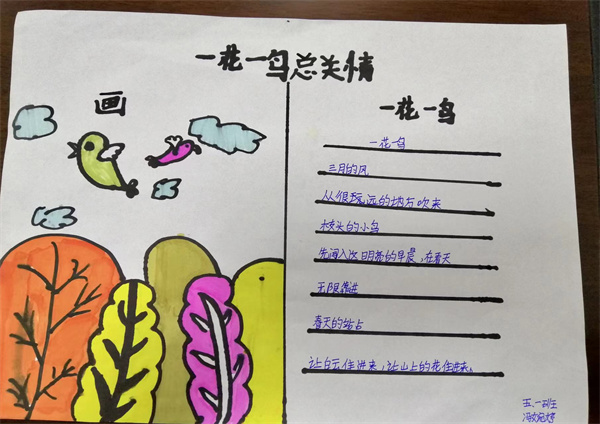 一花一鸟总关情
画
一花一鸟
一花一鸟
三月的风
从很远的地方吹来
枝头的小鸟
先闻入次日明亮的早晨,在春天
无限靠进
春天的站占
让白云住进来,让山上的花住进来。
五、一班
冯